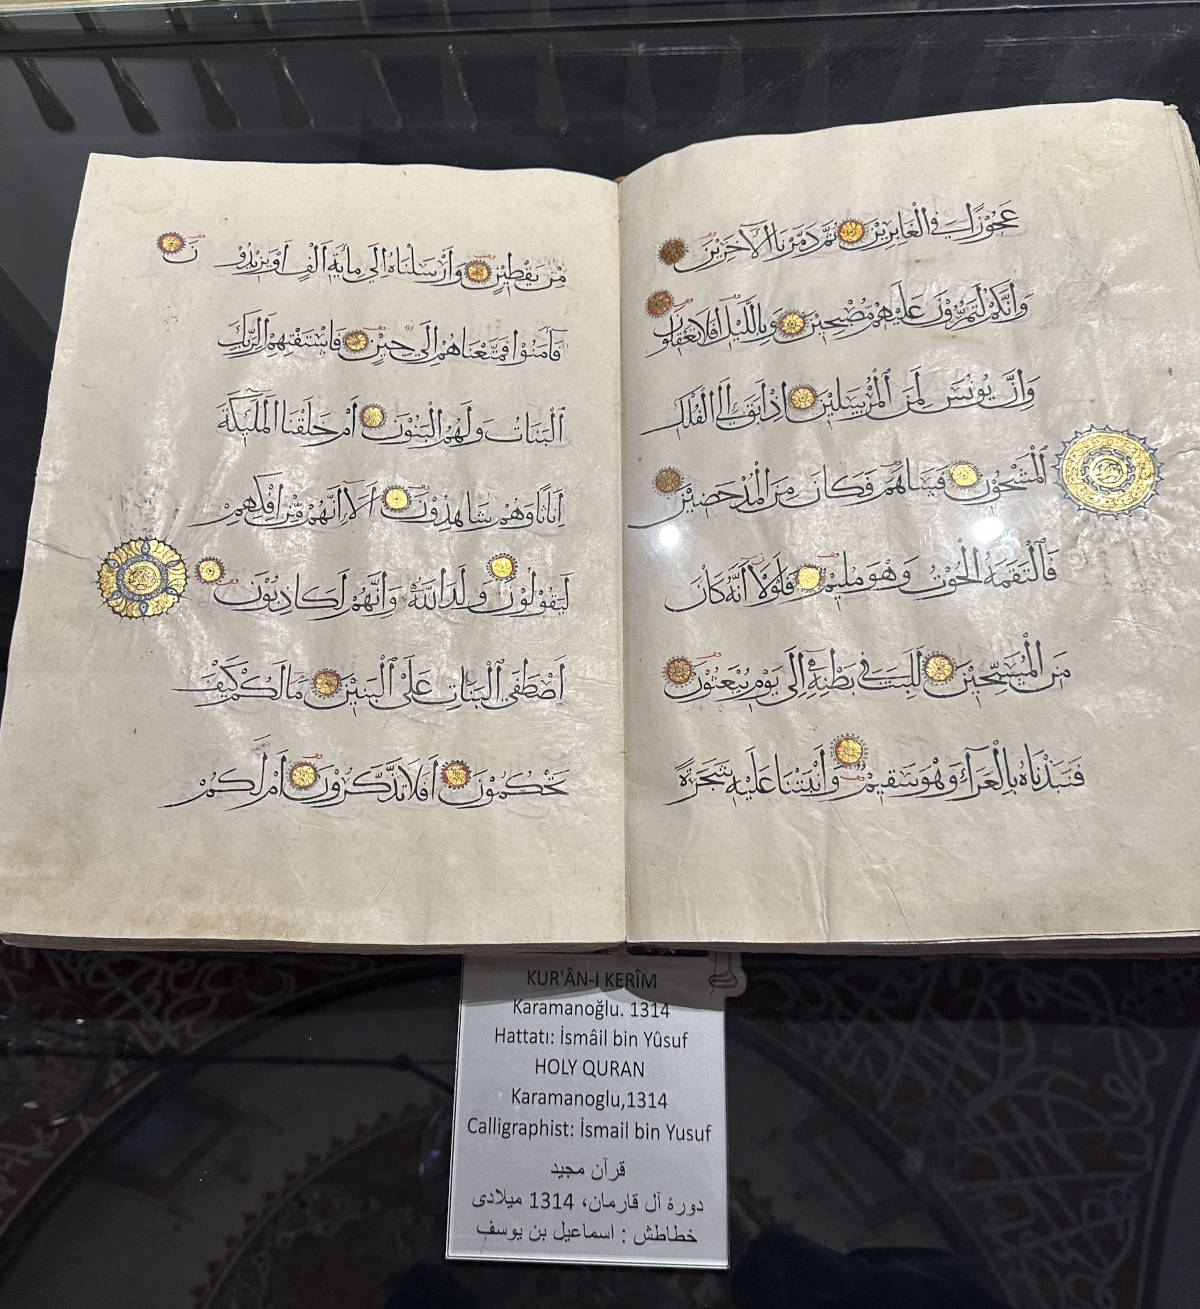 عَجُوزًا فِي الْغَابِرِينَ ثُمَّ دَمَّرْنَا الْآخَرِينَ
وَإِنَّكُمْ لَتَمُرُّونَ عَلَيْهِمْ مُصْبِحِينَ وَبِاللَّيْلِ أَفَلَا تَعْقِلُونَ
وَإِنَّ يُونُسَ لَمِنَ الْمُرْسَلِينَ إِذْ أَبَقَ إِلَى الْفُلْكِ
الْمَشْحُونِ فَسَاهَمَ فَكَانَ مِنَ الْمُدْحَضِينَ
فَالْتَقَمَهُ الْحُوتُ وَهُوَ مُلِيمٌ فَلَوْلَا أَنَّهُ كَانَ
مِنَ الْمُسَبِّحِينَ لَلَبِثَ فِي بَطْنِهِ إِلَى يَوْمِ يُبْعَثُونَ
فَنَبَذْنَاهُ بِالْعَرَاءِ وَهُوَ سَقِيمٌ وَأَنْبَتْنَا عَلَيْهِ شَجَرَةً
مِنْ يَقْطِينٍ وَأَرْسَلْنَاهُ إِلَى مِائَةِ أَلْفٍ أَوْ يَزِيدُونَ
فَآمَنُوا فَمَتَّعْنَاهُمْ إِلَى حِينٍ فَاسْتَفْتِهِمْ أَلِرَبِّكَ
الْبَنَاتُ وَلَهُمُ الْبَنُونَ أَمْ خَلَقْنَا الْمَلٰئِكَةَ
إِنَاثًا وَهُمْ شَاهِدُونَ أَلَا إِنَّهُمْ مِنْ إِفْكِهِمْ
لَيَقُولُونَ وَلَدَ اللَّهُ وَإِنَّهُمْ لَكَاذِبُونَ
أَصْطَفَى الْبَنَاتِ عَلَى الْبَنِينَ مَا لَكُمْ كَيْفَ
تَحْكُمُونَ أَفَلَا تَذَكَّرُونَ أَمْ لَكُمْ
KUR'ÂN-I KERÎM
Karamanoğlu. 1314
Hattatı: İsmâil bin Yûsuf
HOLY QURAN
Karamanoglu,1314
Calligraphist: İsmail bin Yusuf
قرآن مجید
دورهٔ آل قارمان، 1314 میلادی
خطاطش : اسماعیل بن یوسف